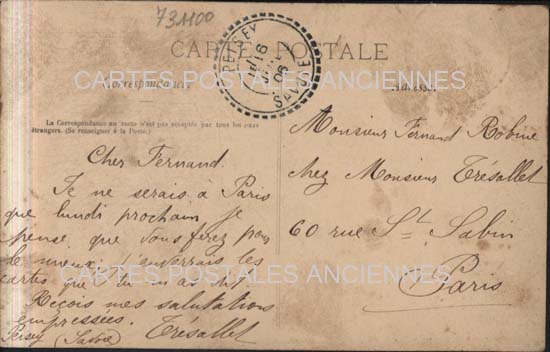 73100
CARTE POSTALE
PEISEY
16
06
SAVOIE
CARTES POSTALES ANCIENNES
Correspondance
Adresse
La Correspondance au recto n'est pas acceptée par tous les pays
étrangers. (Se renseigner à la Poste.)
Cher Fernand.
Je ne serais a Paris
que lundi prochain je
pense que vous ferez pour
le mieux. J'enverrais les
cartes que tu m'as dit
Reçois mes salutations
empressées. Trésallet
Peisey (Savoie)
Monsieur Fernand Robine
chez Monsieur Trésallet
60 rue St Sabin
Paris
CARTES POSTALES ANCIENNES